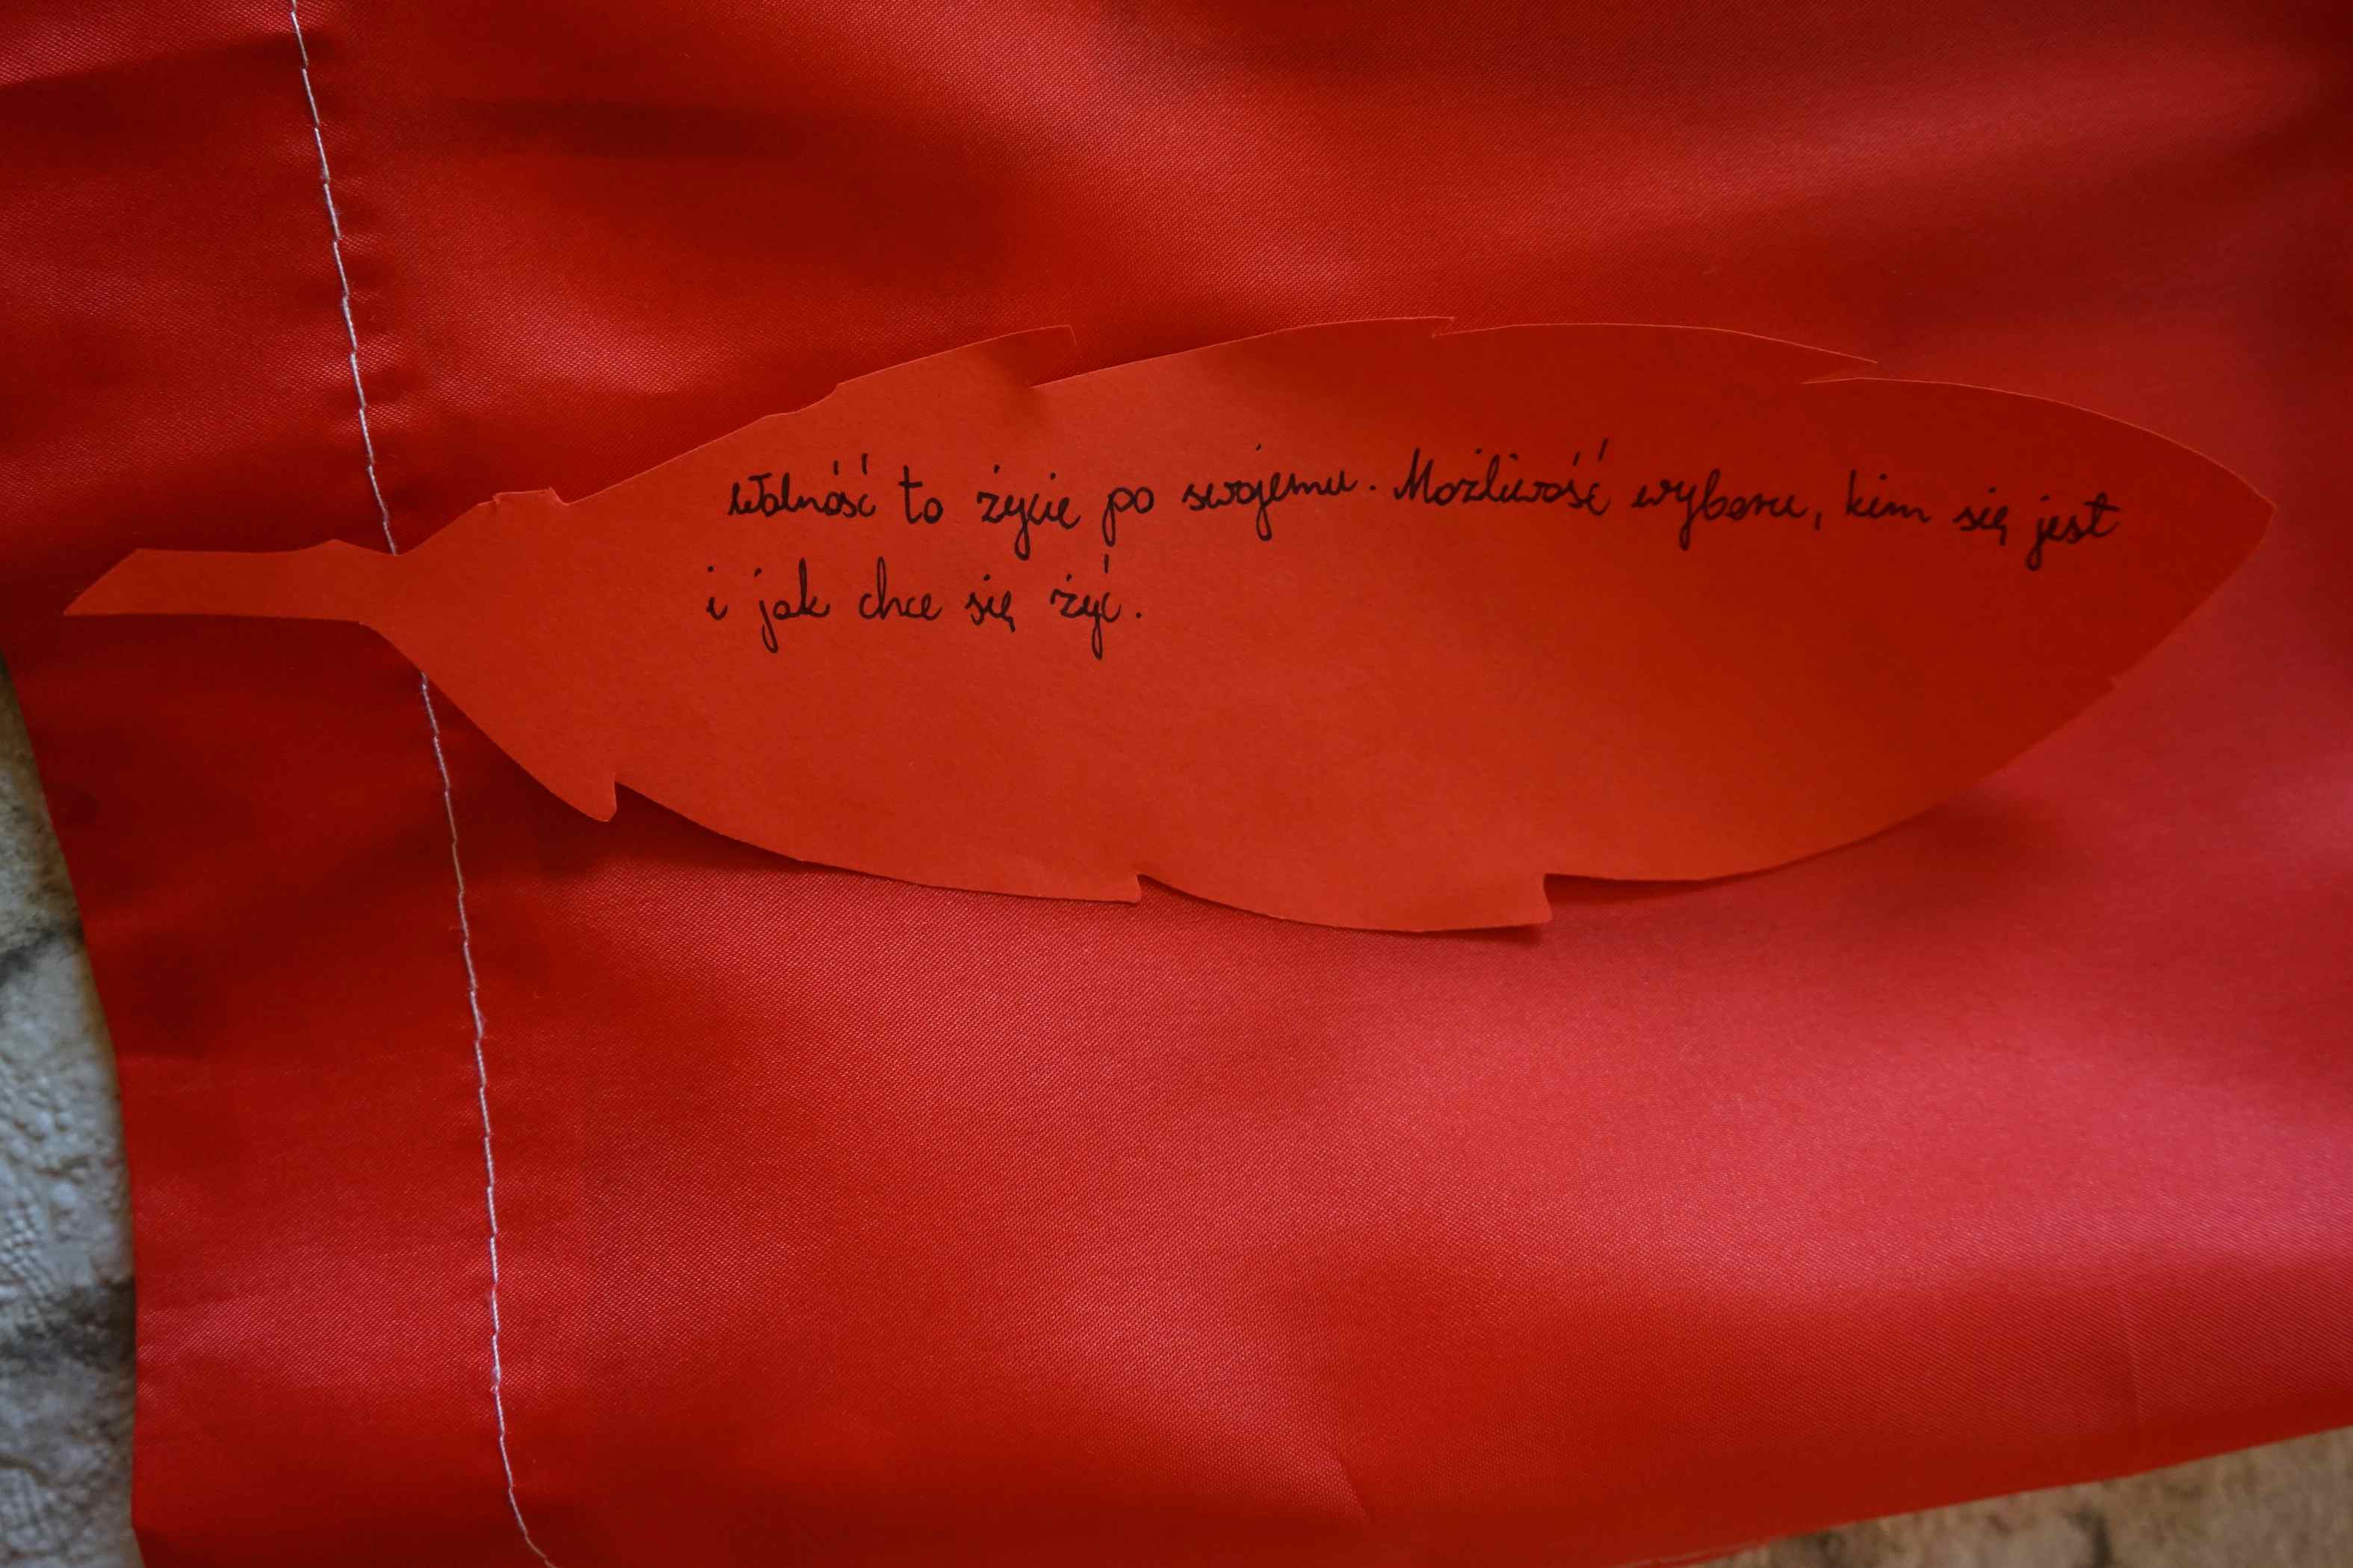 Wolność to życie po swojemu. Możliwość wyboru, kim się jest
i jak chce się żyć.